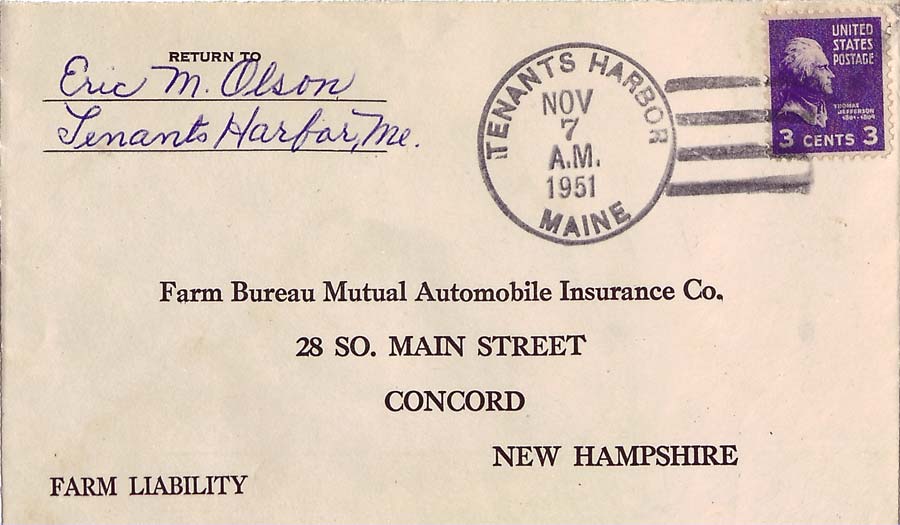 RETURN TO
Eric M. Olson
Tenants Harbor, Me.
TENANTS HARBOR
NOV
7
A.M.
1951
MAINE
UNITED
STATES
POSTAGE
THOMAS
JEFFERSON
1801-1809
3 CENTS 3
Farm Bureau Mutual Automobile Insurance Co.
28 SO. MAIN STREET
CONCORD
NEW HAMPSHIRE
FARM LIABILITY